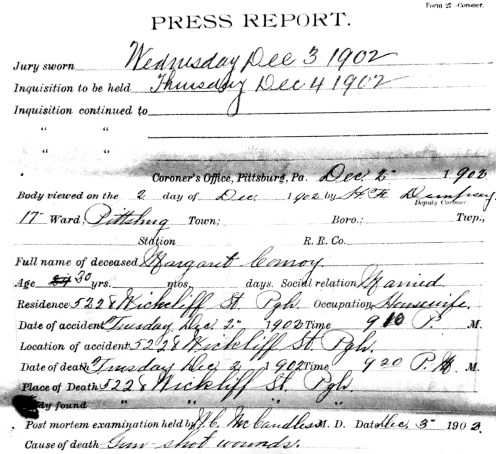 Form 27—Coroner.
PRESS REPORT.
Jury sworn Wednesday Dec 3 1902
Inquisition to be held Thursday Dec 4 1902
Inquisition continued to
" "
" "
Coroner's Office, Pittsburg, Pa. Dec 2" 1902
Body viewed on the 2 day of Dec. 1902 by H H Dempsey
Deputy Coroner.
17" Ward, Pittsburg Town; Boro.; Twp.,
Station R. R. Co.
Full name of deceased Margaret Conroy
Age 30 yrs. mtos, days. Social relation Married
Residence 5228 Wickcliff St Pgh. Occupation Housewife.
Date of accident Tuesday Dec 2" 1902 Time 9 10 P. M.
Location of accident 5228 Wickcliff St Pgh.
Date of death Tuesday Dec 2 1902 Time 9 20 P. M.
Place of Death 5228 Wickcliff St. Pgh.
Body found " " "
Post mortem examination held by J. C. McCandless M. D. Date Dec. 3" 1902
Cause of death Gun-shot wounds.